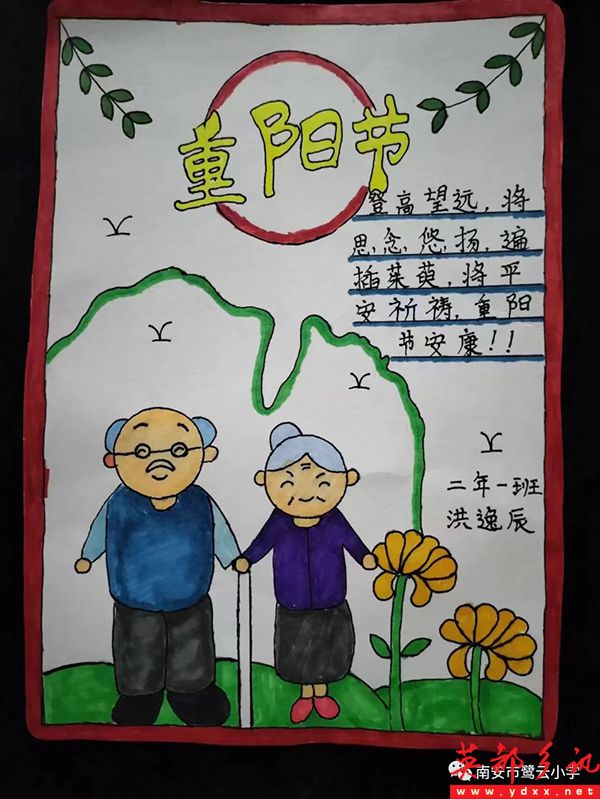 重阳节
登高望远，将
思念悠扬，遍
插茱萸，将平
安祈祷，重阳
节安康！！
二年一班
洪逸辰
南安市鹭云小学
英都乡讯
www.ydxx.net